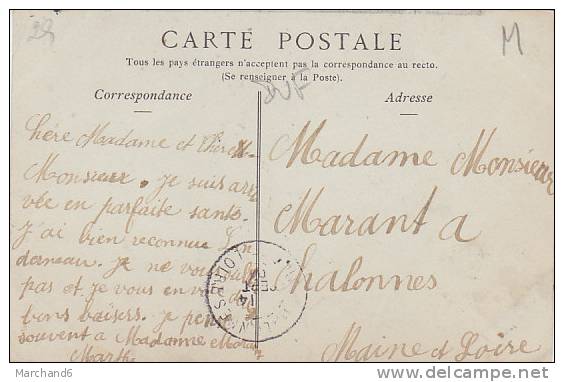 CARTE POSTALE
Tous les pays étrangers n'acceptent pas la correspondance au recto.
(Se renseigner à la Poste).
Correspondance
Adresse
M
Chère Madame et Cher
Monsieur. je suis arri
vée en parfaite santé.
J'ai bien reconnue Lan
derneau. je ne vous oublie
pas et je vous envoi de
bons baisers. je pense
souvent a Madame Maran
Marth
Madame Monsieur
Marant a
Chalonnes
Maine et Loire
Marchand6
delcampe.net